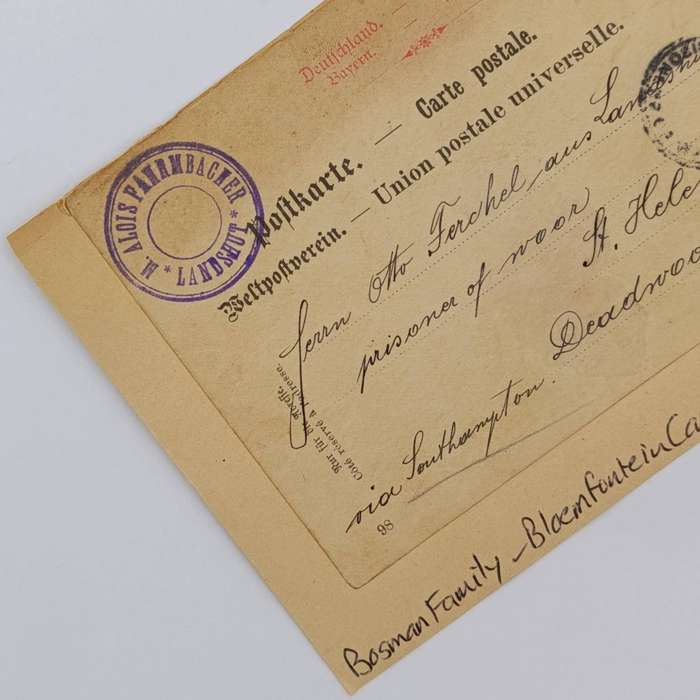 Deutschland.
Bayern.
Postkarte. — Carte postale.
Weltpostverein. — Union postale universelle.
M. ALOIS FAHRMBACHER
* LANDSHUT *
Herrn Otto Ferchel aus Landshu
prisoner of woor
St. Hele
Deadwoo
via Southampton.
Nur für die Adresse.
Côté réservé à l'adresse.
98
Bosman Family - Bloemfontein Ca